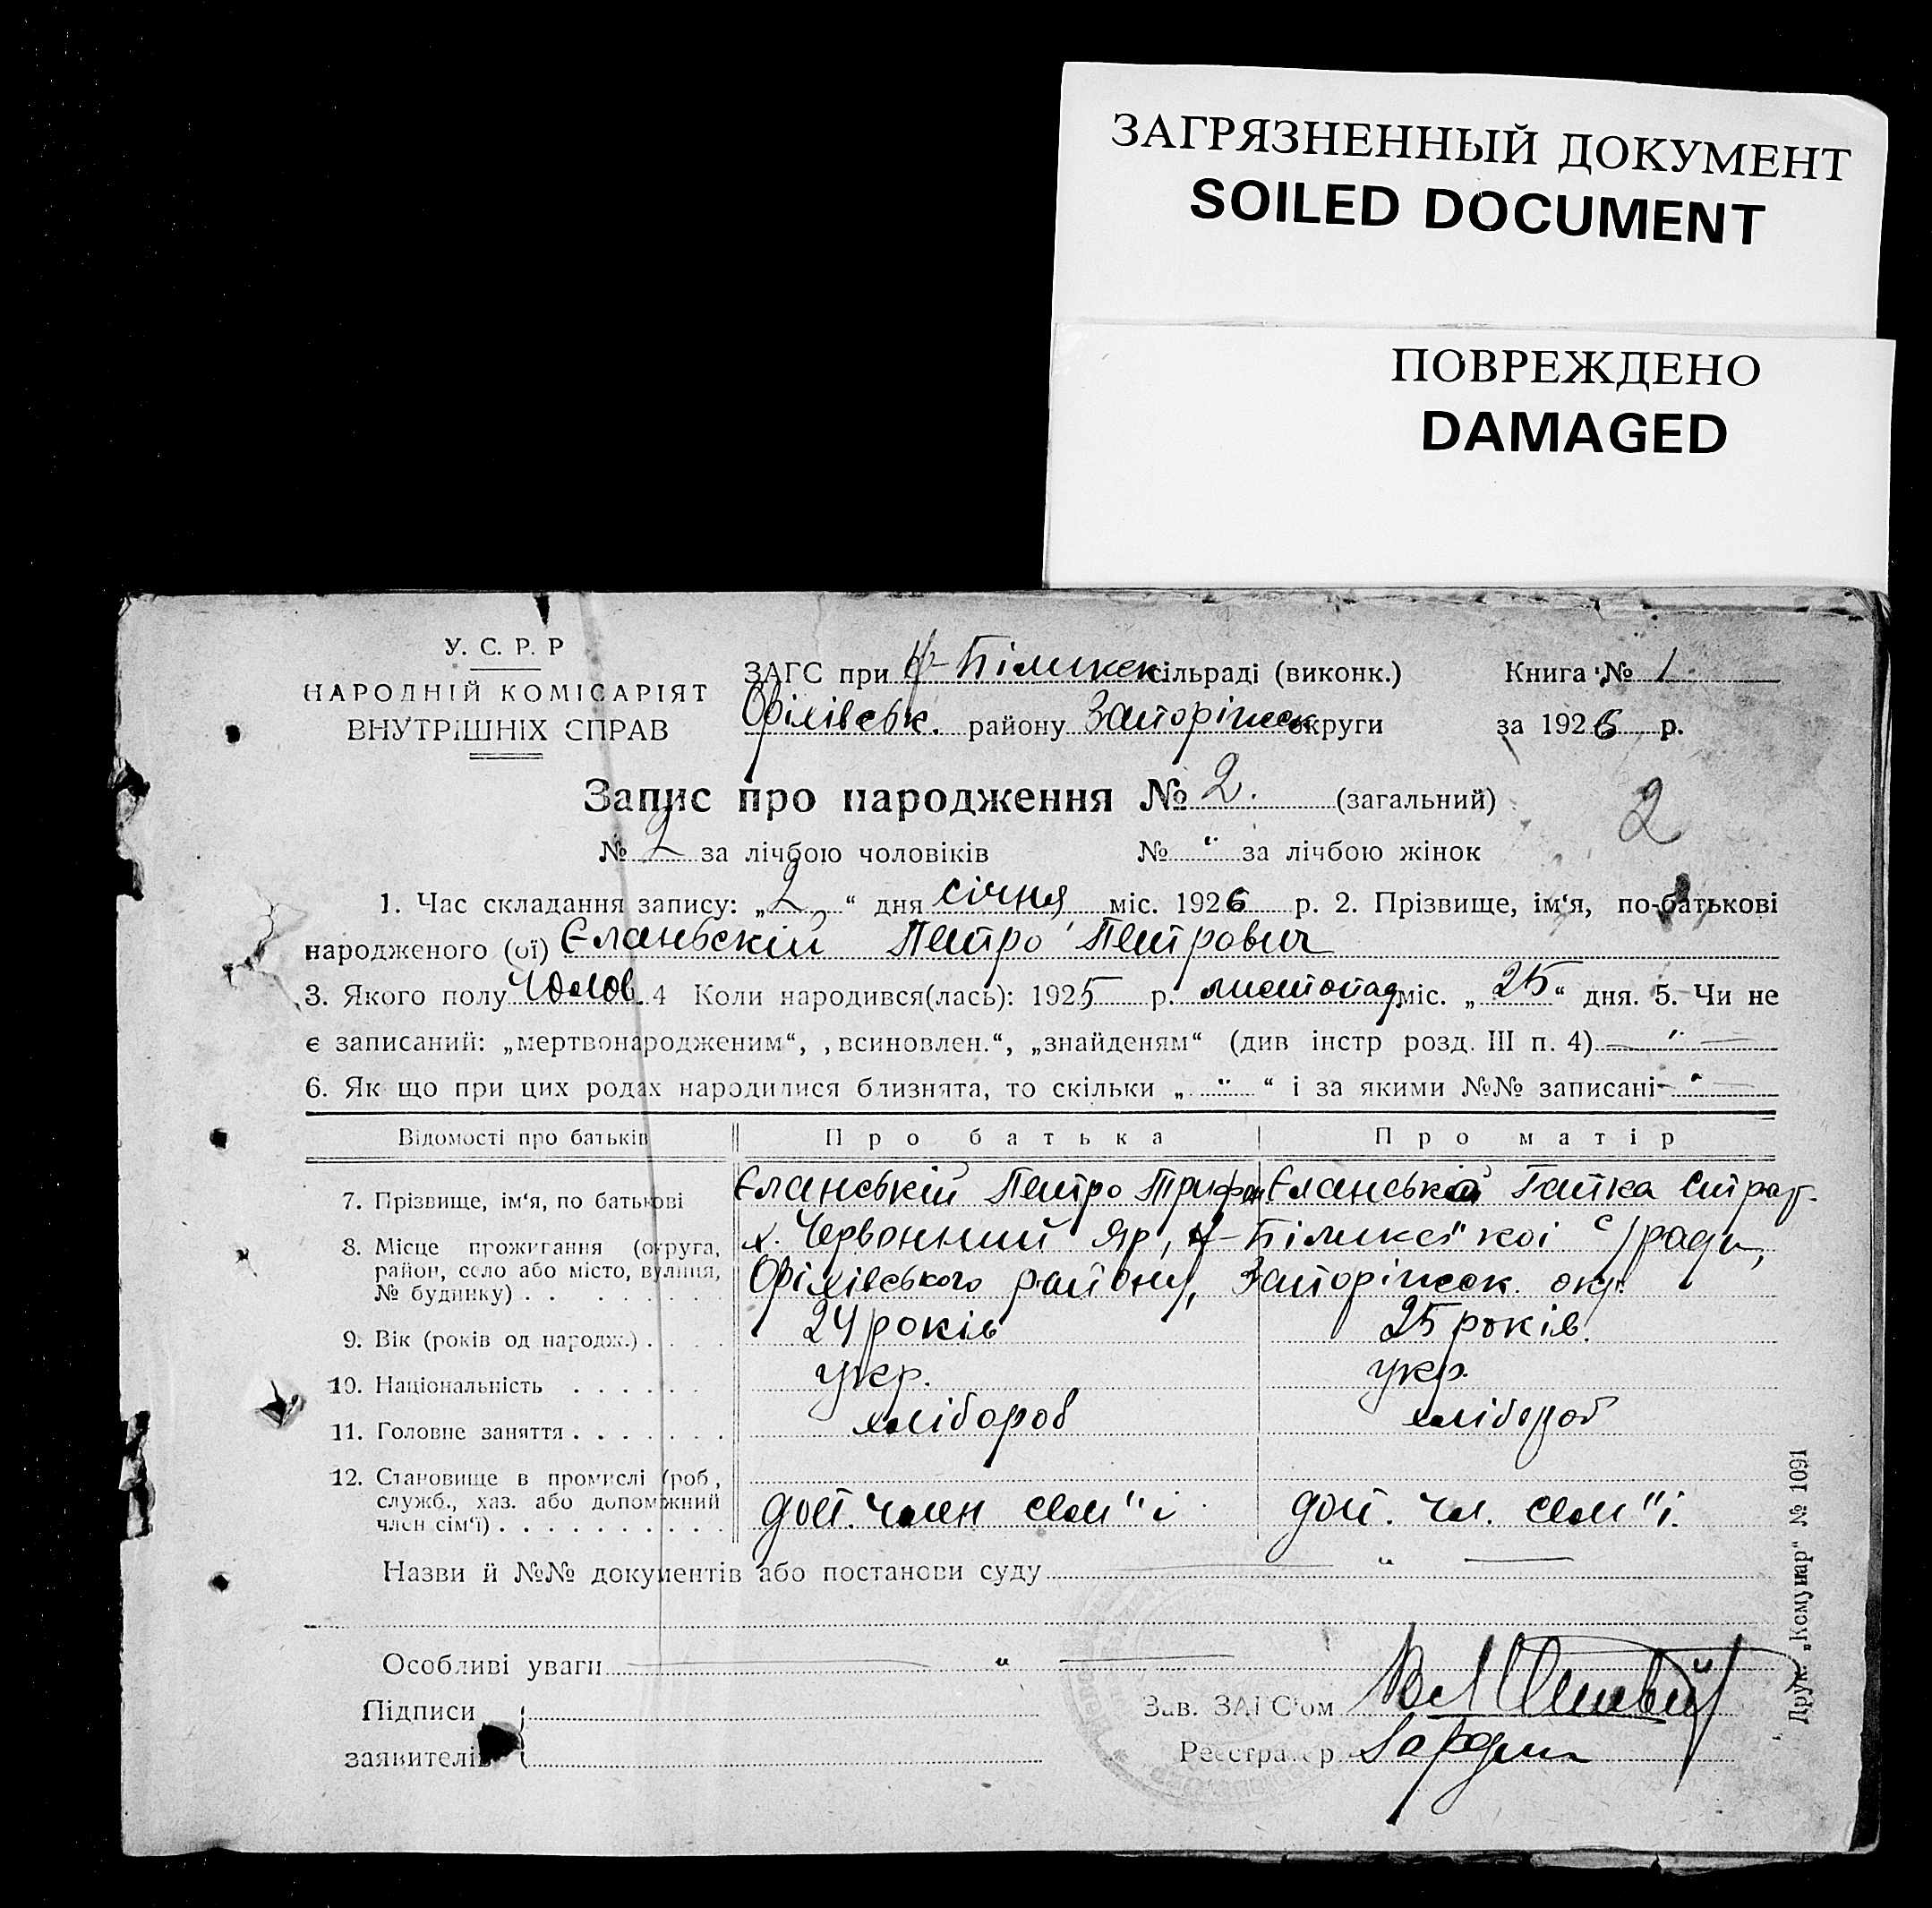 ЗАГРЯЗНЕННЫЙ ДОКУМЕНТ
SOILED DOCUMENT
ПОВРЕЖДЕНО
DAMAGED
У. С. Р. Р
НАРОДНІЙ КОМІСАРІЯТ
ВНУТРІШНІХ СПРАВ
ЗАГС при Біликек сільраді (виконк.)
Книга № 1
Оріхівськ. району Запоріжськ округи
за 1926 р.
Запис про народження № 2. (загальний)
2
№ 2 за лічбою чоловіків № " за лічбою жінок
1. Час складання запису: „2“ дня січня міс. 1926 р. 2. Прізвище, ім‘я, по-батькові
народженого (ої) Єланьскій Петро Петрович
3. Якого полу Чолов. 4 Коли народився(лась): 1925 р. листопад міс. „25“ дня. 5. Чи не
є записаний: „мертвонародженим“, „всиновлен.“, „знайденям“ (див інстр розд. III п. 4) — " —
6. Як що при цих родах народилися близнята, то скільки „ " “ і за якими №№ записані - " —
Відомості про батьків Про батька Про матір
7. Прізвище, ім‘я, по батькові Єланській Петро Трифон Єланська Гапка Страт.
8. Місце прожигання (округа, район, село або місто, вулиця, № будинку) . . . . . . . .
х. Червонний Яр, Білике"кої с/ради,
Оріхівського району, Запоріжськ. окр.
9. Вік (років од народж.) . . . . 24 років 25 років.
10. Національність . . . . . . укр. укр.
11. Головне заняття . . . . . . . хлібороб хлібороб
12. Становище в промислі (роб., служб., хаз. або допоміжний член сім‘ї) . . . . . . . . . . доп. член сем"і доп. чл. сем"і.
Назви й №№ документів або постанови суду — " —
Особливі уваги — " —
Підписи
заявителів
Зав. ЗАГС‘ом
Реєстратор
Друк. „Комунар“ № 1091